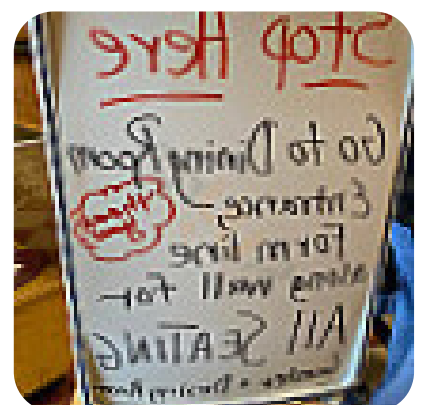 Stop Here
Go to Dining Room
Entrance,
Form line
along wall for
All SEATING
Dining Room